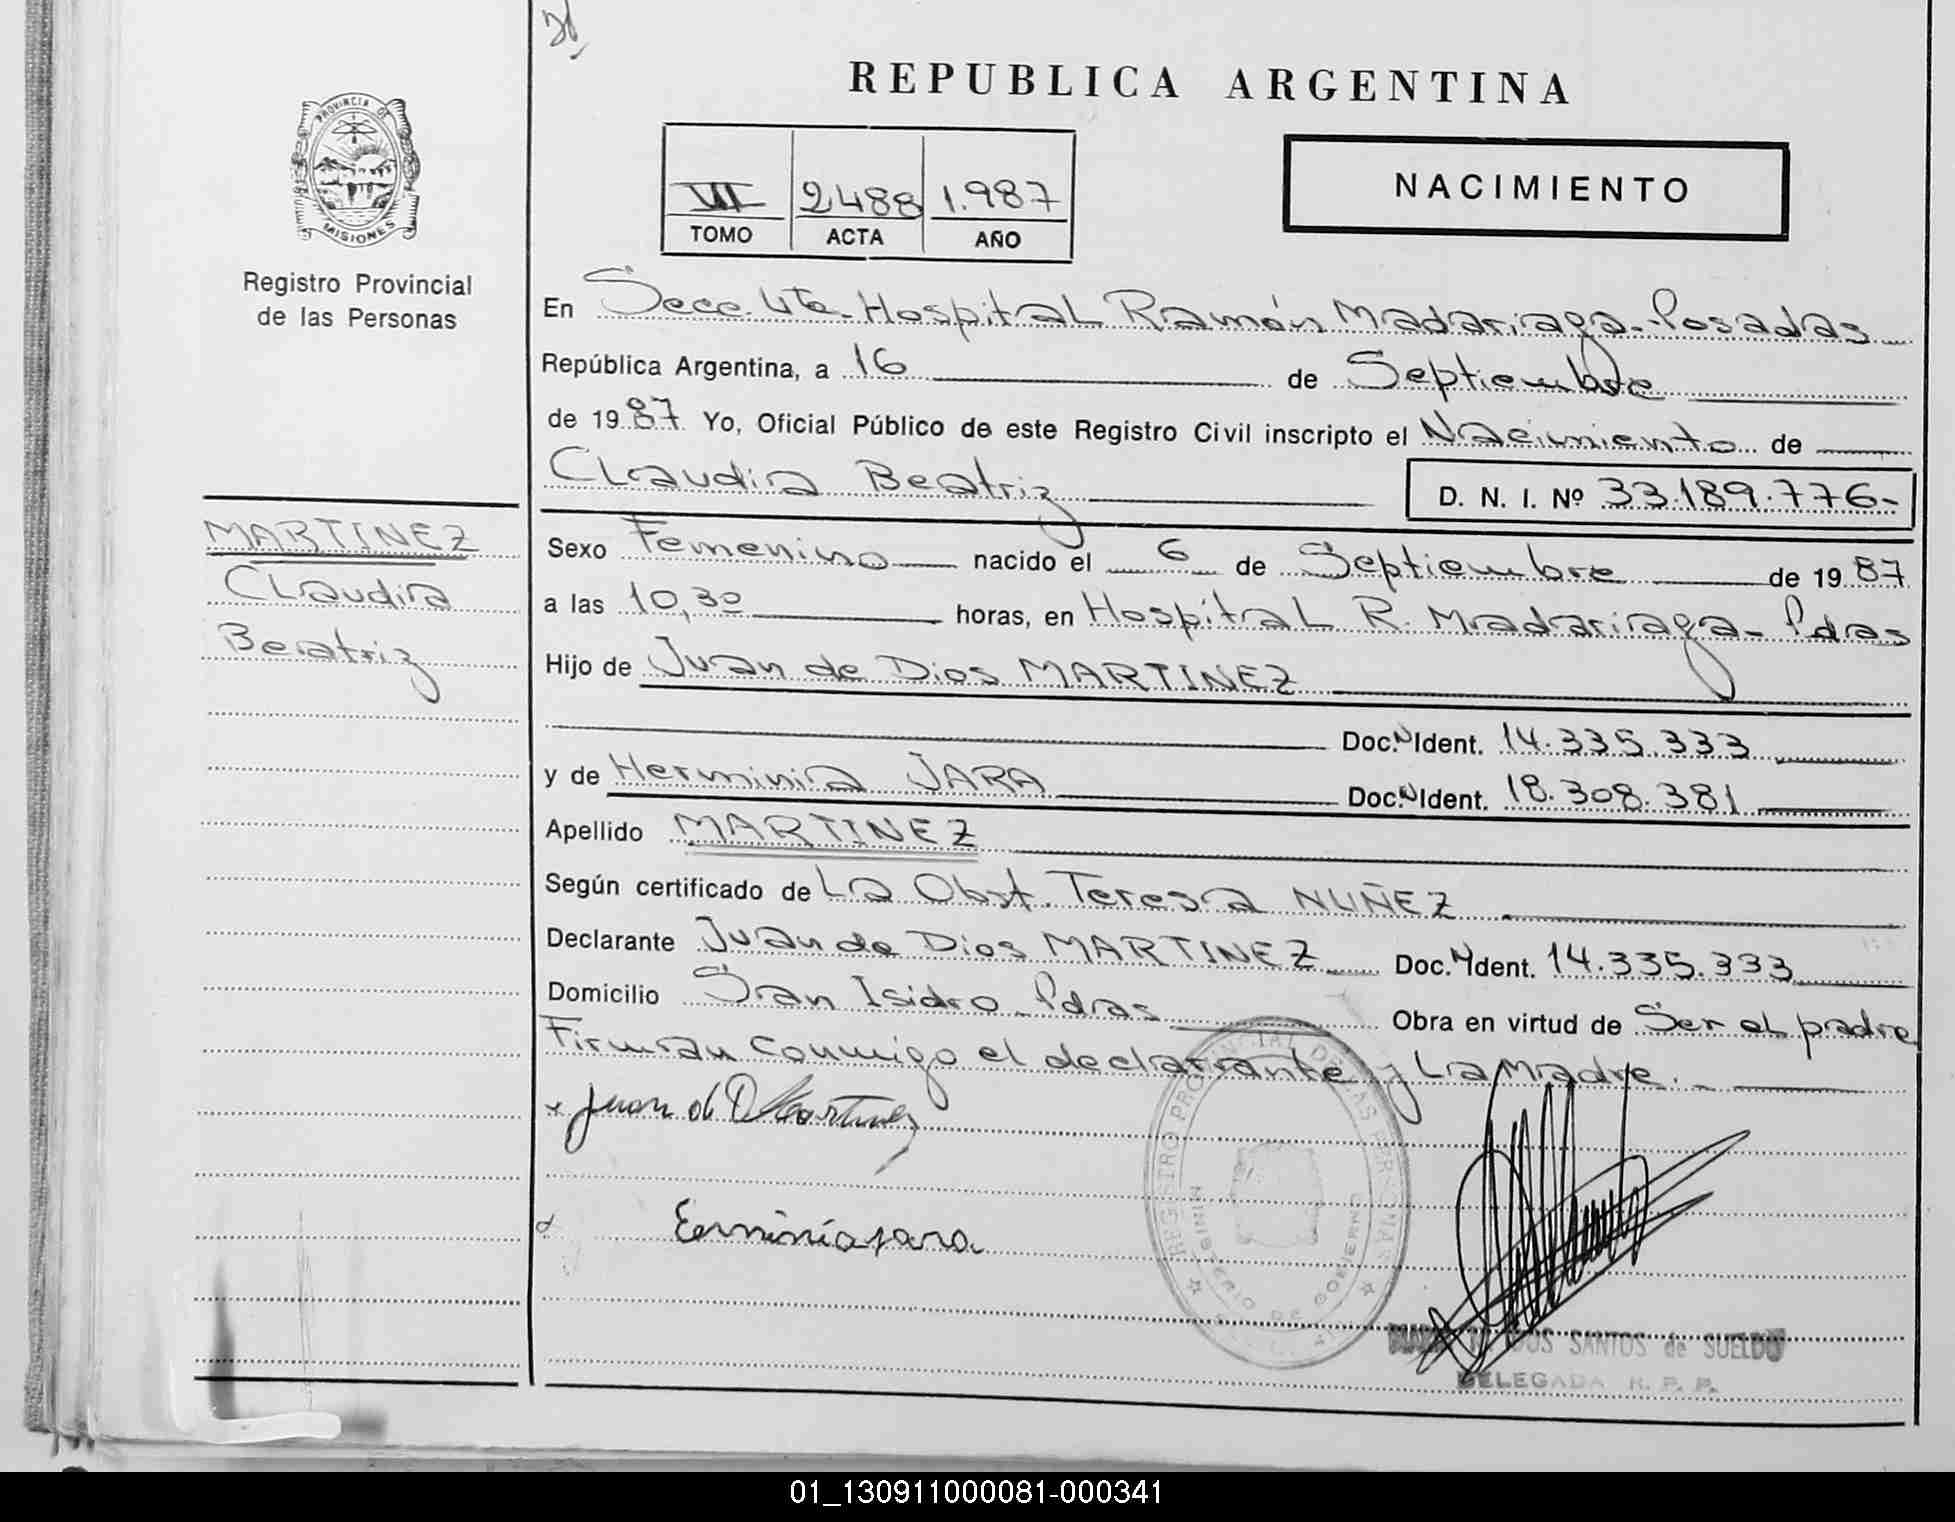 REPUBLICA ARGENTINA
PROVINCIA DE
MISIONES
Registro Provincial
de las Personas
VII 2488 1.987
TOMO ACTA AÑO
NACIMIENTO
En Secc. 4ta. Hospital Ramón Madariaga - Posadas
República Argentina, a 16 de Septiembre
de 1987 Yo, Oficial Público de este Registro Civil inscripto el Nacimiento de
Claudia Beatriz
D. N. I. Nº 33.189.776-
MARTINEZ
Claudia
Beatriz
Sexo Femenino nacido el 6 de Septiembre de 1987
a las 10,30 horas, en Hospital R. Madariaga - Pdas
Hijo de Juan de Dios MARTINEZ
Doc. N Ident. 14.335.333
y de Herminia JARA Doc. N Ident. 18.308.381
Apellido MARTINEZ
Según certificado de La Obst. Teresa NUÑEZ
Declarante Juan de Dios MARTINEZ Doc. N Ident. 14.335.333
Domicilio San Isidro - Pdas Obra en virtud de Ser el padre
Firman conmigo el declarante y La Madre. -
x Juan d D Martinez
Erminia jara
REGISTRO PROVINCIAL DE LAS PERSONAS
MINISTERIO DE GOBIERNO
DOS SANTOS de SUELDO
DELEGADA R. P. P.
01_130911000081-000341